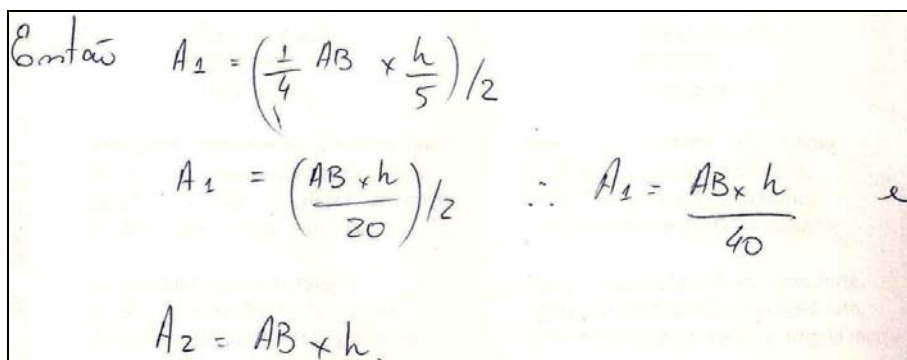 Então A1 = (1/4 AB × h/5)/2
A1 = (AB × h/20)/2 ∴ A1 = AB × h/40 e
A2 = AB × h.